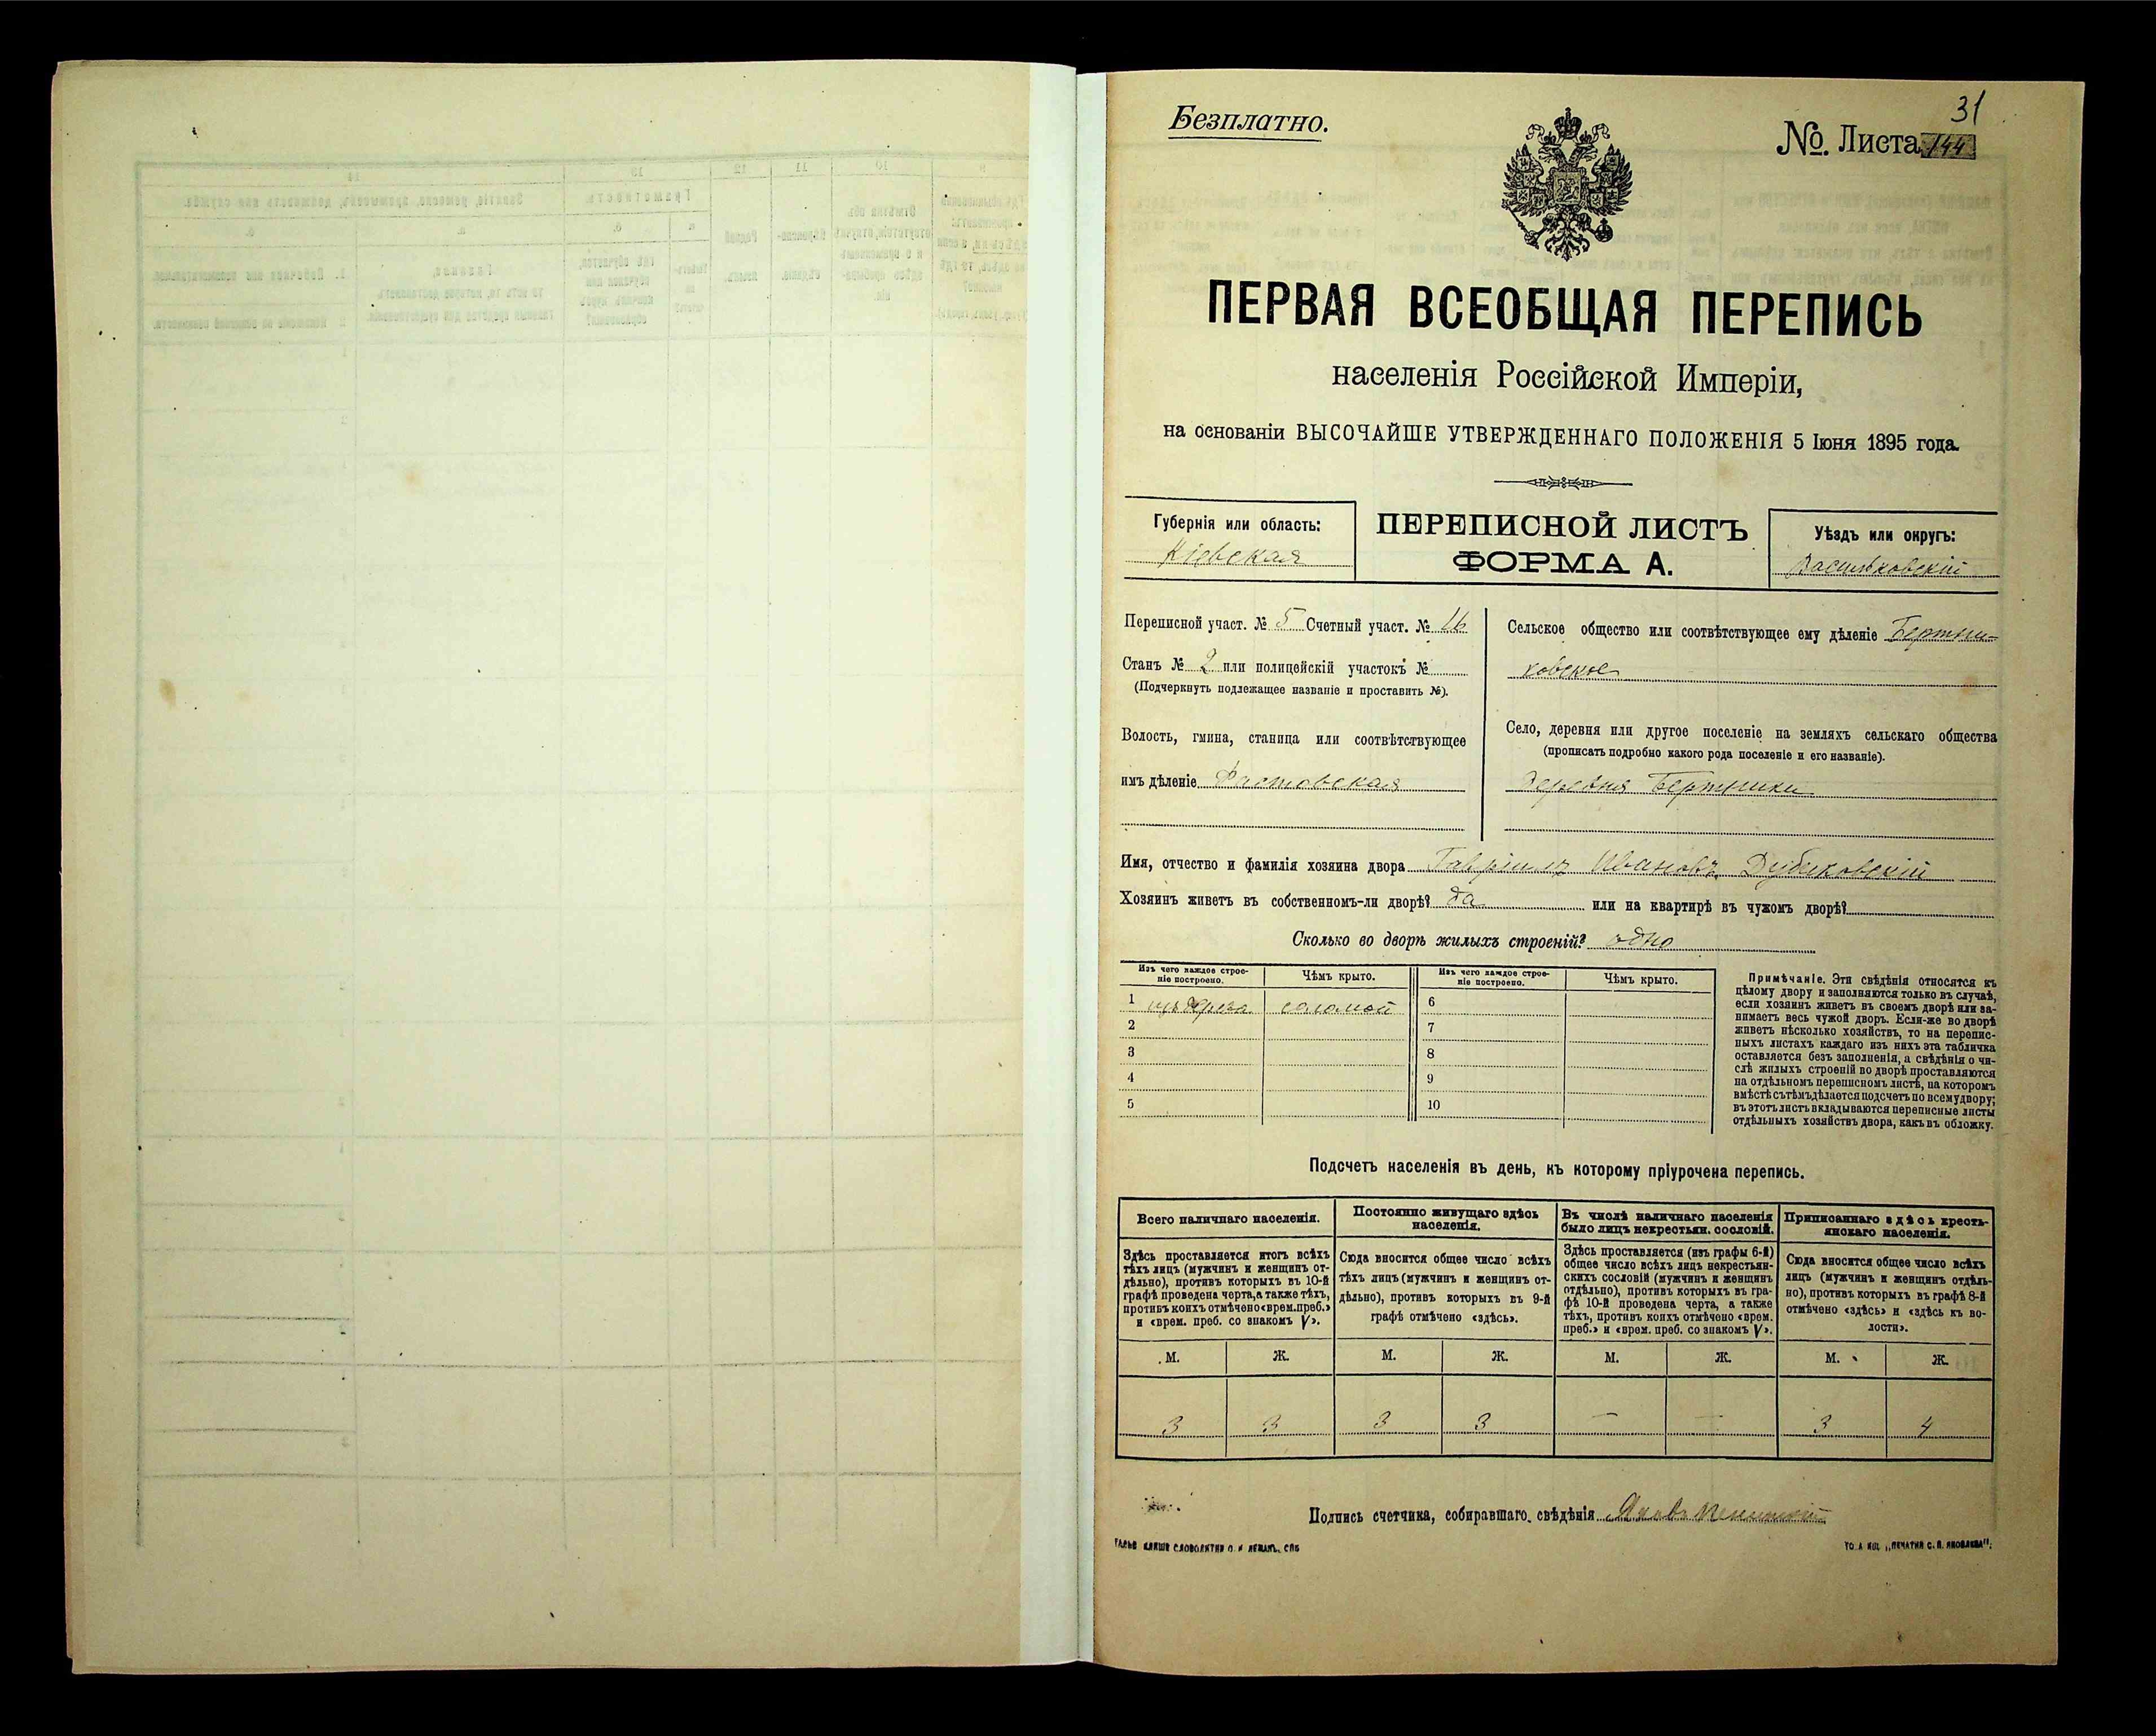 31
Безплатно.
№. Листа 144
ПЕРВАЯ ВСЕОБЩАЯ ПЕРЕПИСЬ
населенія Россійской Имперіи,
на основаніи ВЫСОЧАЙШЕ УТВЕРЖДЕННАГО ПОЛОЖЕНІЯ 5 Іюня 1895 года.
Губернія или область:
Кіевская
ПЕРЕПИСНОЙ ЛИСТЪ
ФОРМА А.
Уѣздъ или округъ:
Васильковскій
Переписной участ. № 5 Счетный участ. № 16
Станъ № 2 или полицейскій участокъ №
(Подчеркнуть подлежащее названіе и проставить №).
Волость, гмина, станица или соотвѣтствующее
имъ дѣленіе Фастовская
Сельское общество или соотвѣтствующее ему дѣленіе Бертни-
ковское
Село, деревня или другое поселеніе на земляхъ сельскаго общества
(прописать подробно какого рода поселеніе и его названіе).
Деревня Бертники
Имя, отчество и фамилія хозяина двора Гавріилъ Ивановъ Дубиковскій
Хозяинъ живетъ въ собственномъ-ли дворѣ? да или на квартирѣ въ чужомъ дворѣ?
Сколько во дворѣ жилыхъ строеній? одно
Изъ чего каждое строе-
ніе построено.
Чѣмъ крыто.
Изъ чего каждое строе-
ніе построено.
Чѣмъ крыто.
1 изъ дерева соломой 6
2 7
3 8
4 9
5 10
Примѣчаніе. Эти свѣдѣнія относятся къ
цѣлому двору и заполняются только въ случаѣ,
если хозяинъ живетъ въ своемъ дворѣ или за-
нимаетъ весь чужой дворъ. Если-же во дворѣ
живетъ нѣсколько хозяйствъ, то на перепис-
ныхъ листахъ каждаго изъ нихъ эта табличка
оставляется безъ заполненія, а свѣдѣнія о чи-
слѣ жилыхъ строеній во дворѣ проставляются
на отдѣльномъ переписномъ листѣ, на которомъ
вмѣстѣ съ тѣмъ дѣлается подсчетъ по всему двору;
въ этотъ листъ вкладываются переписные листы
отдѣльныхъ хозяйствъ двора, какъ въ обложку.
Подсчетъ населенія въ день, къ которому пріурочена перепись.
Всего наличнаго населенія.
Здѣсь проставляется итогъ всѣхъ
тѣхъ лицъ (мужчинъ и женщинъ от-
дѣльно), противъ которыхъ въ 10-й
графѣ проведена черта, а также тѣхъ,
противъ коихъ отмѣчено «врем. преб.»
и «врем. преб. со знакомъ V».
Постоянно живущаго здѣсь
населенія.
Сюда вносится общее число всѣхъ
тѣхъ лицъ (мужчинъ и женщинъ от-
дѣльно), противъ которыхъ въ 9-й
графѣ отмѣчено «здѣсь».
Въ числѣ наличнаго населенія
было лицъ некрестьян. сословій.
Здѣсь проставляется (изъ графы 6-й)
общее число всѣхъ лицъ некрестьян-
скихъ сословій (мужчинъ и женщинъ
отдѣльно), противъ которыхъ въ гра-
фѣ 10-й проведена черта, а также
тѣхъ, противъ коихъ отмѣчено «врем.
преб.» и «врем. преб. со знакомъ V».
Приписаннаго здѣсь кресть-
янскаго населенія.
Сюда вносится общее число всѣхъ
лицъ (мужчинъ и женщинъ отдѣль-
но), противъ которыхъ въ графѣ 8-й
отмѣчено «здѣсь» и «здѣсь къ во-
лости».
М. Ж. М. Ж. М. Ж. М. Ж.
3 3 3 3 — — 3 4
Подпись счетчика, собиравшаго свѣдѣнія